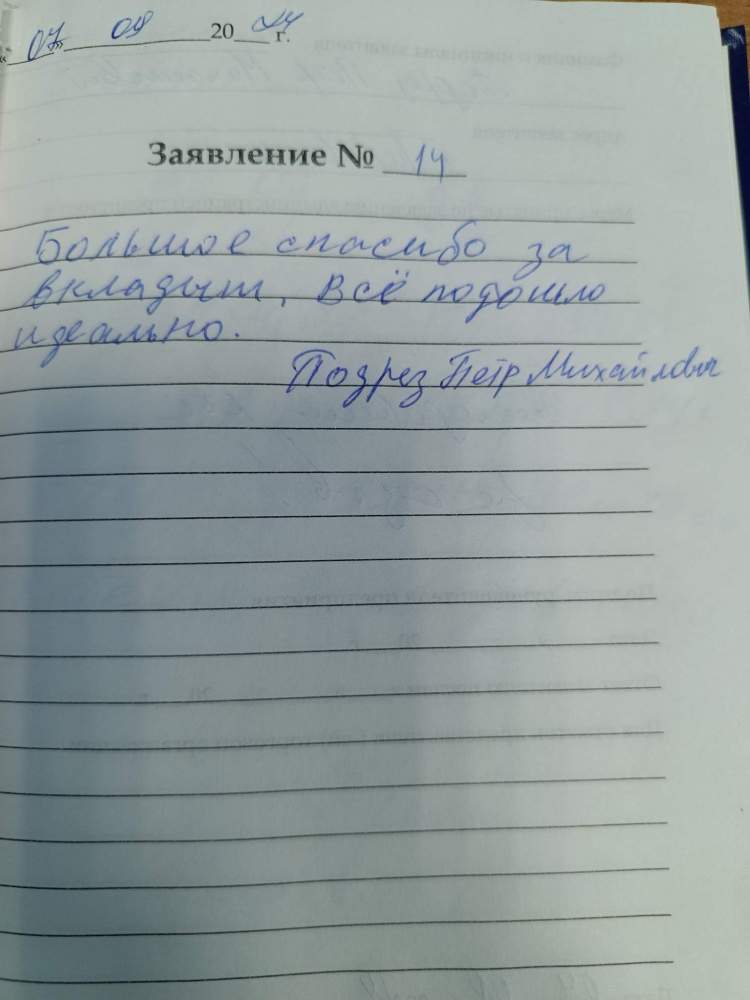 « 07 » 09 20 24 г.
Заявление № 14
Большое спасибо за
вкладыш, Всё подошло
идеально.
Подрез Пётр Михайлович